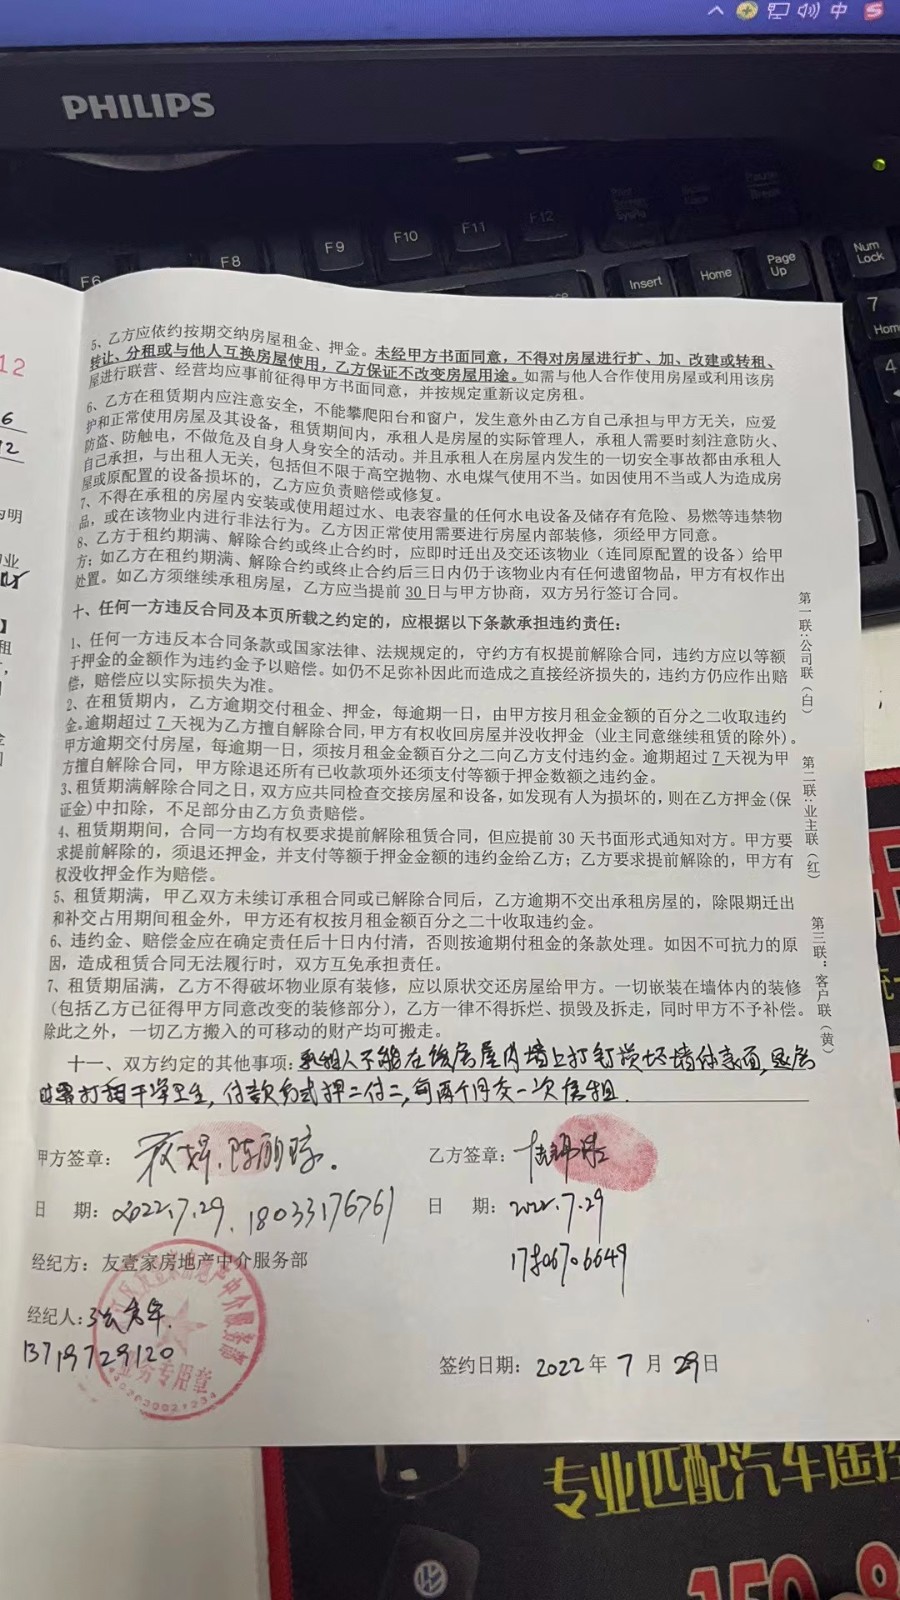 中
S
PHILIPS
F6
F8
F9
F10
F11
F12
Insert
Home
Page Up
Num Lock
7
Hom
4
12
6
12
5、乙方应依约按期交纳房屋租金、押金。未经甲方书面同意，不得对房屋进行扩、加、改建或转租、
转让、分租或与他人互换房屋使用，乙方保证不改变房屋用途。如需与他人合作使用房屋或利用该房
屋进行联营、经营均应事前征得甲方书面同意，并按规定重新议定房租。
6、乙方在租赁期内应注意安全，不能攀爬阳台和窗户，发生意外由乙方自己承担与甲方无关，应爱
护和正常使用房屋及其设备，租赁期间内，承租人是房屋的实际管理人，承租人需要时刻注意防火、
防盗、防触电，不做危及自身人身安全的活动。并且承租人在房屋内发生的一切安全事故都由承租人
自己承担，与出租人无关，包括但不限于高空抛物、水电煤气使用不当。如因使用不当或人为造成房
屋或原配置的设备损坏的，乙方应负责赔偿或修复。
7、不得在承租的房屋内安装或使用超过水、电表容量的任何水电设备及储存有危险、易燃等违禁物
品，或在该物业内进行非法行为。乙方因正常使用需要进行房屋内部装修，须经甲方同意。
8、乙方于租约期满、解除合约或终止合约时，应即时迁出及交还该物业（连同原配置的设备）给甲
方；如乙方在租约期满、解除合约或终止合约后三日内仍于该物业内有任何遗留物品，甲方有权作出
处置。如乙方须继续承租房屋，乙方应当提前 30 日与甲方协商，双方另行签订合同。
十、任何一方违反合同及本页所载之约定的，应根据以下条款承担违约责任：
1、任何一方违反本合同条款或国家法律、法规规定的，守约方有权提前解除合同，违约方应以等额
于押金的金额作为违约金予以赔偿。如仍不足弥补因此而造成之直接经济损失的，违约方仍应作出赔
偿，赔偿应以实际损失为准。
2、在租赁期内，乙方逾期交付租金、押金，每逾期一日，由甲方按月租金金额的百分之二收取违约
金。逾期超过 7 天视为乙方擅自解除合同，甲方有权收回房屋并没收押金（业主同意继续租赁的除外）。
甲方逾期交付房屋，每逾期一日，须按月租金金额百分之二向乙方支付违约金。逾期超过 7 天视为甲
方擅自解除合同，甲方除退还所有已收款项外还须支付等额于押金数额之违约金。
3、租赁期满解除合同之日，双方应共同检查交接房屋和设备，如发现有人为损坏的，则在乙方押金(保
证金)中扣除，不足部分由乙方负责赔偿。
4、租赁期期间，合同一方均有权要求提前解除租赁合同，但应提前 30 天书面形式通知对方。甲方要
求提前解除的，须退还押金，并支付等额于押金金额的违约金给乙方；乙方要求提前解除的，甲方有
权没收押金作为赔偿。
5、租赁期满，甲乙双方未续订承租合同或已解除合同后，乙方逾期不交出承租房屋的，除限期迁出
和补交占用期间租金外，甲方还有权按月租金额百分之二十收取违约金。
6、违约金、赔偿金应在确定责任后十日内付清，否则按逾期付租金的条款处理。如因不可抗力的原
因，造成租赁合同无法履行时，双方互免承担责任。
7、租赁期届满，乙方不得破坏物业原有装修，应以原状交还房屋给甲方。一切嵌装在墙体内的装修
(包括乙方已征得甲方同意改变的装修部分），乙方一律不得拆烂、损毁及拆走，同时甲方不予补偿。
除此之外，一切乙方搬入的可移动的财产均可搬走。
十一、双方约定的其他事项：承租人不能在该房屋内墙上打钉损坏墙体表面，退房
时需打扫干净卫生，付款方式押二付二，每两个月交一次房租.
甲方签章：
日 期：2022.7.29. 18033176761
乙方签章：
日 期：2022.7.29
17806706649
经纪方：友壹家房地产中介服务部
经纪人：
13719729120
业务专用章
签约日期：2022年 7 月 29日
第一联：公司联（白）
第二联：业主联（红）
第三联：客户联（黄）
专业匹配汽车遥控